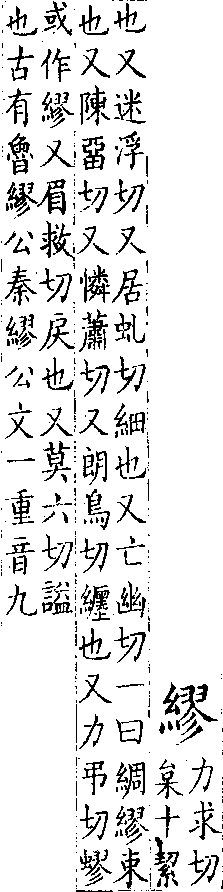 繆
力求切
枲十絜
也又迷浮切又居虬切細也又亡幽切一曰綢繆束
也又陳畱切又憐蕭切又朗鳥切纏也又力弔切蟉
或作繆又眉救切戾也又莫六切謚
也古有魯繆公秦繆公文一重音九